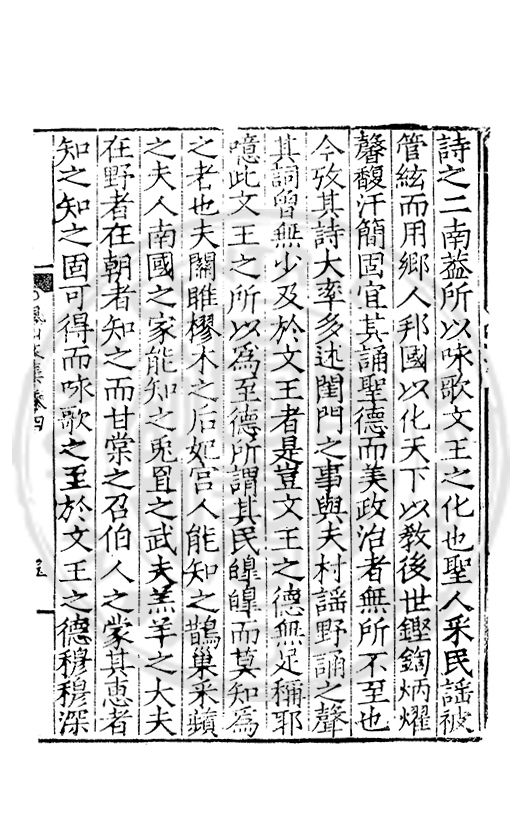 詩之二南葢所以咏歌文王之化也聖人采民謡被
管絃而用鄉人邦國以化天下以敎後世鏗鍧炳耀
馨馥汗簡固宜其誦聖德而美政治者無所不至也
今攷其詩大率多述閨門之事與夫村謡野誦之聲
其詞曾無少及於文王者是豈文王之德無足稱耶
噫此文王之所以為至德所謂其民皥皥而莫知為
之者也夫關雎樛木之后妃宫人能知之鵲巢采蘋
之夫人南國之家能知之兎罝之武夫羔羊之大夫
在野者在朝者知之而甘棠之召伯人之蒙其恵者
知之知之固可得而咏歌之至於文王之德穆穆深